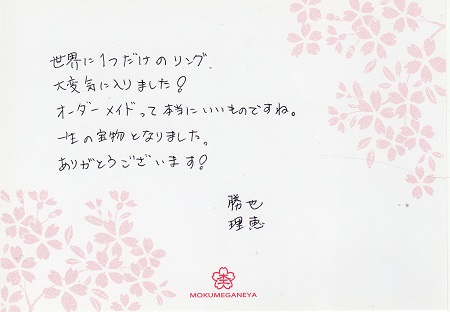 世界に1つだけのリング、
大変気に入りました!
オーダーメイドって本当にいいものですね。
一生の宝物となりました。
ありがとうございます!
勝也
理恵
MOKUMEGANEYA